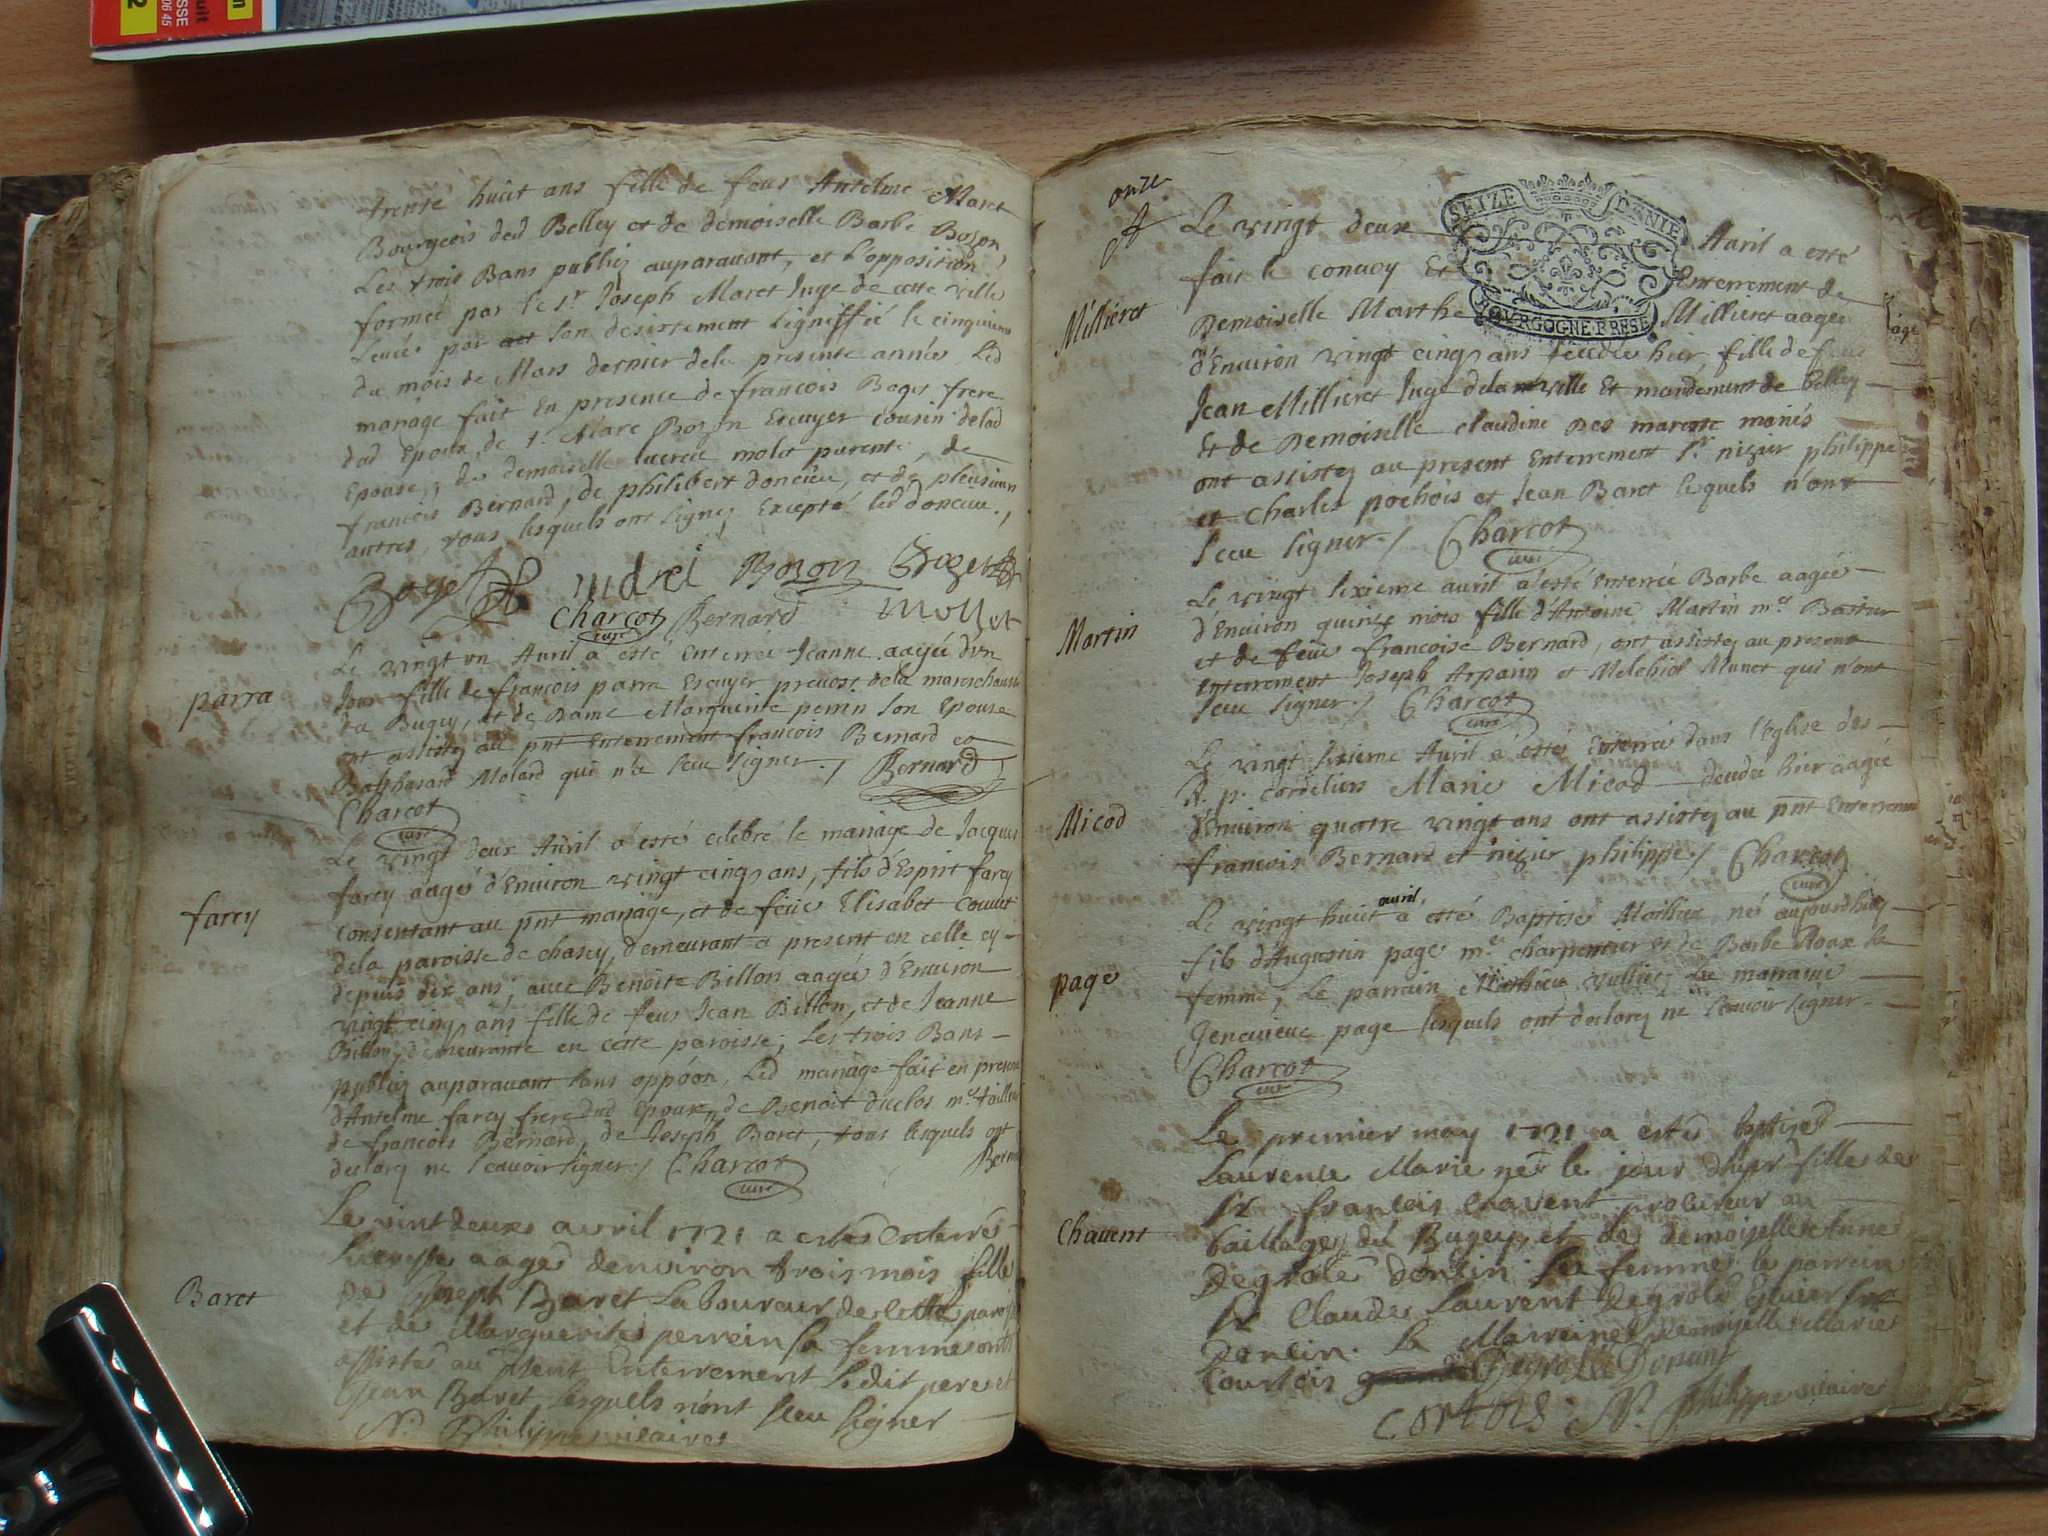 trente huict ans fille de feus Antelme Maret
Bourgeois dud Belley et de demoiselle Barbe Bozon
Les trois Bans publiez auparavant, et l'opposition
formée par le Sr. Joseph Maret Juge de cette ville
Levée par son desistement signiffié le cinquieme
du mois de Mars dernier dela presente année, Led
mariage fait En presence de francois Baget frere
dud Epoux, de Sr. Marc Bozon Escuyer cousin delad
Epouse, de demoiselle molet parente, de
francois Bernard, de philibert doncieu, et de plusieurs
autres, tous lesquels ont signez Excepté led doncieu.
Baget Bozon Baget
Charcot curé Bernard Mollet
parra
Le vingt un Avril a esté Enterrée Jeanne aagée d'un
Jour fille de francois parra Escuyer prevost dela mareschaussée
du Bugey, et de Dame Marguerite perrin son Epouse
ont assistez au pnt Enterrement francois Bernard et
Balthasard Molard qui n'a sceu signer./. Bernard
Charcot
curé
farcy
Le vingt deux Avril a esté celebré le mariage de Jacques
farcy aagé d'Environ vingt cinq ans, fils d'Esprit farcy
consentant au pnt mariage, et de feüe Elisabet
dela paroisse de chasey, demeurant a present en celle cy
depuis dix ans, avec Benoite Billon aagée d'Environ
vingt cinq ans fille de feus Jean Billon, et de Jeanne
Billon, demeurante en cette paroisse, Les trois Bans
publiez auparavant sans oppóon, Led mariage fait en presence
d'Antelme farcy frere dud Epoux, de Benoit duclos me. tailleur
de francois Bernard, de Joseph Baret, tous lesquels ont
declarez ne scavoir signer./ Charcot Berna
curé
Baret
Le vint deuxe avril 1721 a estes Enterrés
Lucresse aages denviron trois mois fille
de Joseph Baret Laboureur de cette paroisse
et de Marguerites perrein sa femme sont
assistes au psent Enterrement Ledit pere et
Jean Baret lesquels n'ont sceu signer
N. Philippe vicaires
onze
Le vingt deux Avril a esté
SEIZE DENIE
BOVRGOGNE BRESE
fait le convoy Et Enterrement de
Millieret
Demoiselle Marthe Millieret aagée
d'Environ vingt cinq ans decedée hier, fille de feu
Jean Millieret Juge dela ville Et mandement de belley
Et de Demoiselle claudine Des mariés
ont assistez au present Enterrement Sr. nizier philippe
et Charles pochois et Jean Baret lesquels n'ont
sceu signer./ Charcot
curé
Martin
Le vingt sixieme avril a esté Enterrée Barbe aagée
d'Environ quinze mois fille d'Antoine Martin me.
et de feüe francoise Bernard, ont assistez au present
Enterrement Joseph Arparin et Melchiol Munet qui n'ont
sceu signer./ Charcot
curé
Micod
Le vingt sixieme Avril a esté Enterrée dans l'Eglise des
R. p. cordeliers Marie Micod decedée hier aagée
d'Environ quatre vingt ans ont assistez au pnt Enterrement
francois Bernard et nizier philippe./ Charcot
curé
page
Le vingt huict avril a esté Baptisé Mathieu né aujourdhuy
fils d'Augustin page me. charpentier et de Barbe Roux sa
femme, Le parrain Mathieu vulliez La marraine
Genevieve page lesquels ont declarez ne scavoir signer.
Charcot
curé
Chavent
Le premier may 1721 a estés baptizeé
Laurence Marie neé le jour d'hyer fille de
Sr francois chavent procureur au
bailliage du Bugey, et de demoiselle Anne
Degrolé donlin sa femme le parrein
Sr Claude Laurent Degrolé Escuier Sr
Donlin. la Marreine Demoiselle Marie
Courtois Degrolé Donlin
cortois N. philippe vicaires